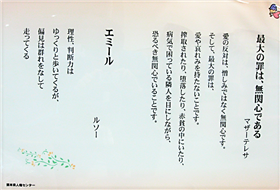 最大の罪は、無関心である
マザーテレサ
愛の反対は、憎しみではなく無関心です。
そして、最大の罪は、
愛や哀れみを持たないことです。
搾取されたり、堕落したり、赤貧の中にいたり、
病気で困っている隣人を目にしながら、
恐るべき無関心でいることです。
エミール
ルソー
理性、判断力は
ゆっくりと歩いてくるが、
偏見は群れをなして
走ってくる